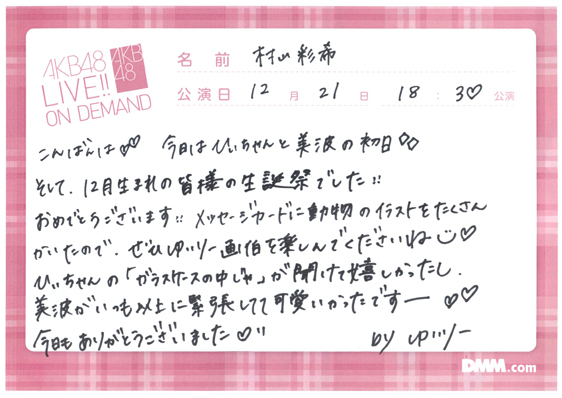 AKB48
LIVE!!
ON DEMAND
AKB
48
名前 村山彩希
公演日 12月21日 18:30公演
こんばんは♡♡ 今日はひぃちゃんと美波の初日◇◇
そして、12月生まれの皆様の生誕祭でした!!
おめでとうございます!! メッセージカードに動物のイラストをたくさん
かいたので、ぜひゆいりー画伯を楽しんでくださいね☺♡
ひぃちゃんの「ガラスケースの中じゃ」が聞けて嬉しかったし、
美波がいつも以上に緊張してて可愛いかったですー ♡♡
今日もありがとうございました♡!!
by ゆいりー
DMM.com